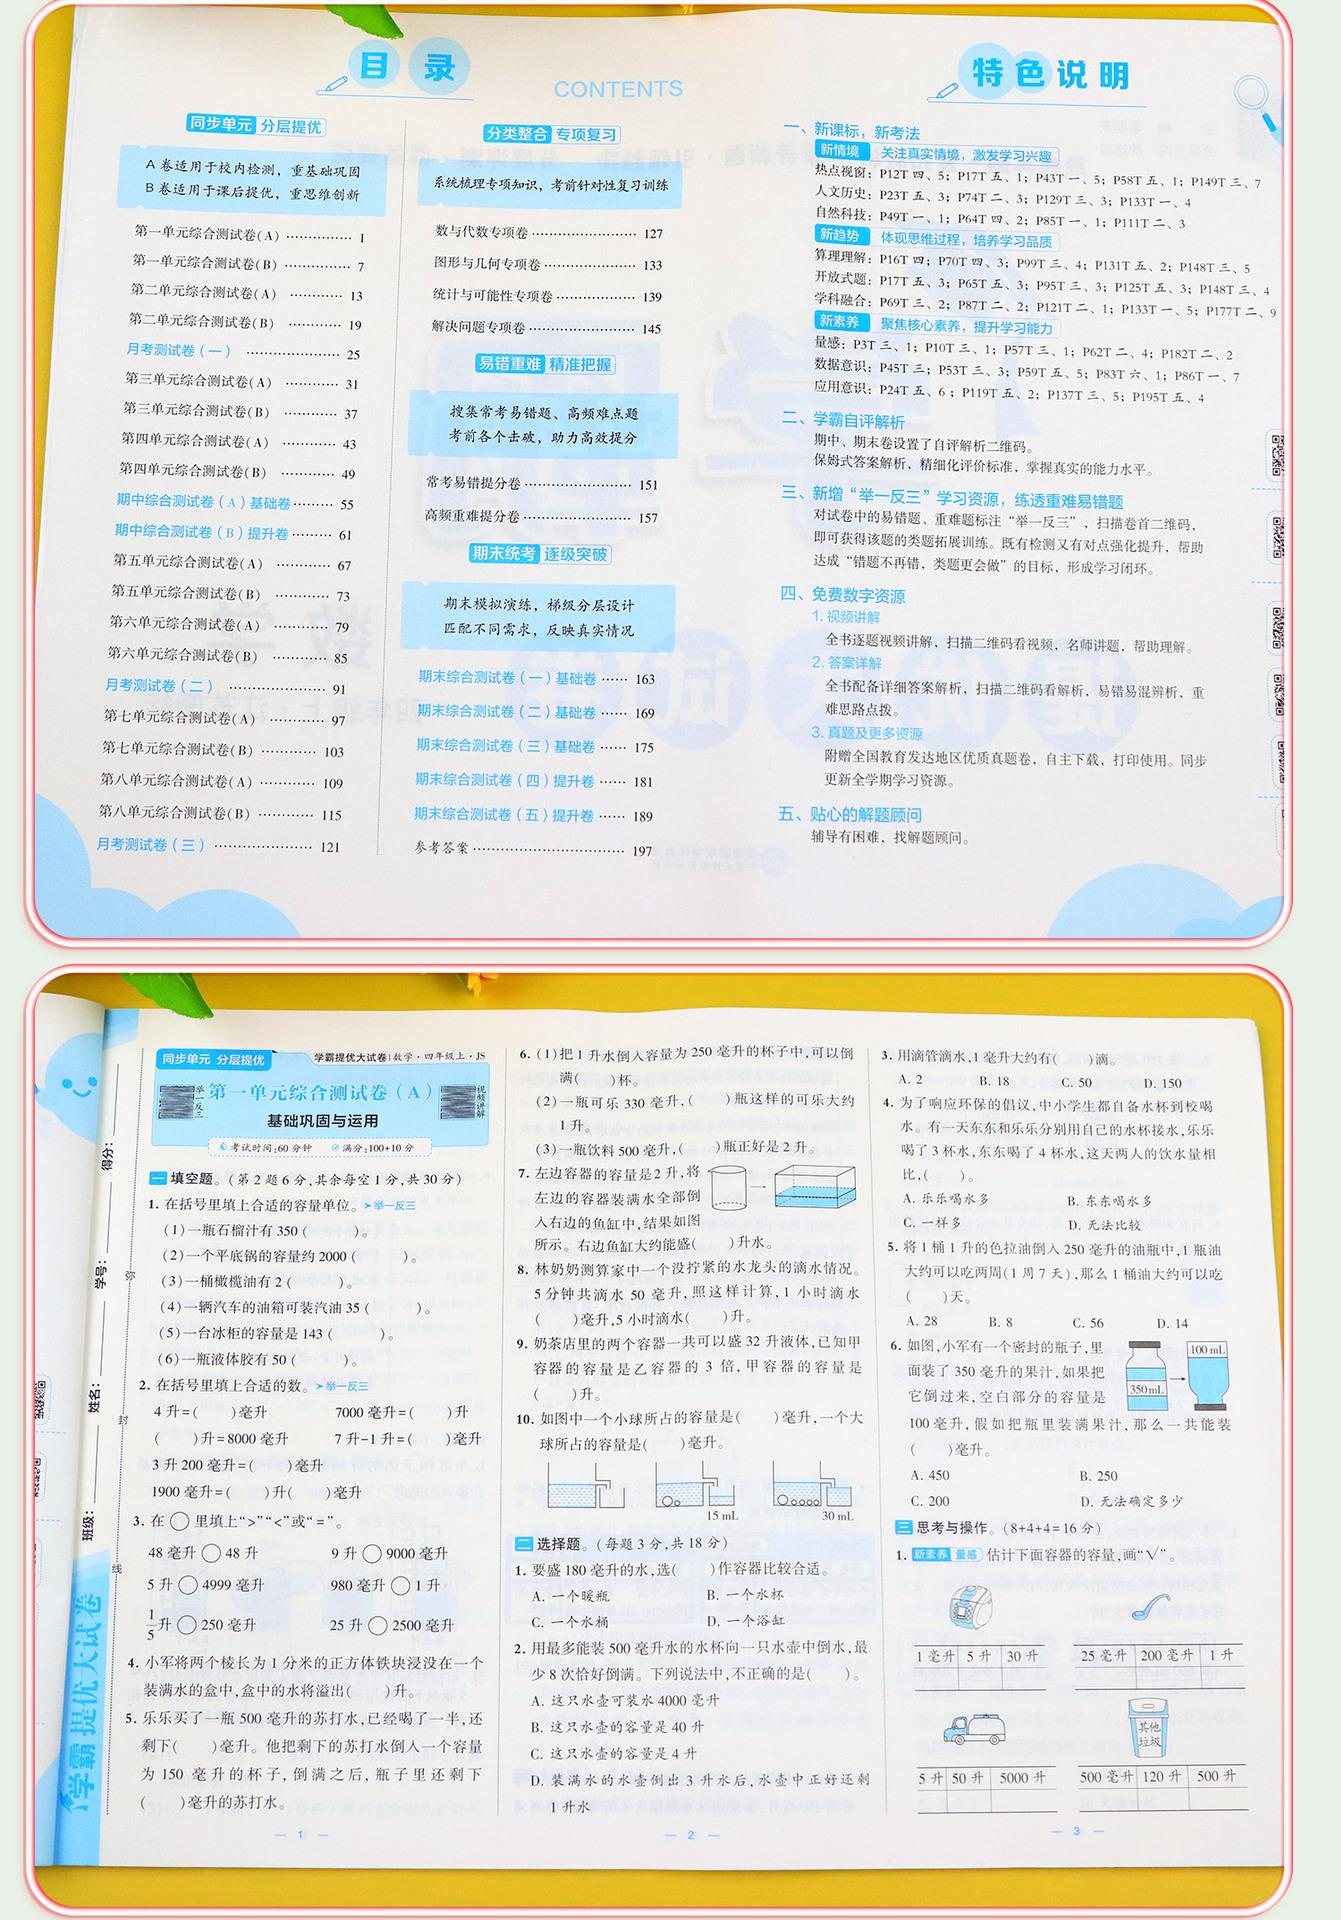 目录
CONTENTS
同步单元 分层提优
A 卷适用于校内检测，重基础巩固
B 卷适用于课后提优，重思维创新
第一单元综合测试卷(A) ··············· 1
第一单元综合测试卷(B) ··············· 7
第二单元综合测试卷(A) ··············· 13
第二单元综合测试卷(B) ··············· 19
月考测试卷（一） ··············· 25
第三单元综合测试卷(A) ··············· 31
第三单元综合测试卷(B) ··············· 37
第四单元综合测试卷(A) ··············· 43
第四单元综合测试卷(B) ··············· 49
期中综合测试卷（A）基础卷 ········· 55
期中综合测试卷（B）提升卷 ········· 61
第五单元综合测试卷(A) ··············· 67
第五单元综合测试卷(B) ··············· 73
第六单元综合测试卷(A) ··············· 79
第六单元综合测试卷(B) ··············· 85
月考测试卷（二） ··············· 91
第七单元综合测试卷(A) ············ 97
第七单元综合测试卷(B) ············ 103
第八单元综合测试卷(A) ············ 109
第八单元综合测试卷(B) ············ 115
月考测试卷（三） ··············· 121
分类整合 专项复习
系统梳理专项知识，考前针对性复习训练
数与代数专项卷 ··············· 127
图形与几何专项卷 ··············· 133
统计与可能性专项卷 ··············· 139
解决问题专项卷 ··············· 145
易错重难 精准把握
搜集常考易错题、高频难点题
考前各个击破，助力高效提分
常考易错提分卷 ··············· 151
高频重难提分卷 ··············· 157
期末统考 逐级突破
期末模拟演练，梯级分层设计
匹配不同需求，反映真实情况
期末综合测试卷（一）基础卷 ······ 163
期末综合测试卷（二）基础卷 ······ 169
期末综合测试卷（三）基础卷 ······ 175
期末综合测试卷（四）提升卷 ······ 181
期末综合测试卷（五）提升卷 ······ 189
参考答案 ························ 197
特色说明
一、新课标，新考法
新情境 关注真实情境，激发学习兴趣
热点视窗：P12T 四、5；P17T 五、1；P43T 一、5；P58T 五、1；P149T 三、7
人文历史：P23T 五、3；P74T 二、3；P129T 三、3；P133T 一、4
自然科技：P49T 一、1；P64T 四、2；P85T 一、1；P111T 二、3
新趋势 体现思维过程，培养学习品质
算理理解：P16T 四；P70T 四、3；P99T 三、4；P131T 五、2；P148T 三、5
开放式题：P17T 五、3；P65T 五、3；P95T 三、3；P125T 五、3；P148T 三、4
学科融合：P69T 三、2；P87T 二、2；P121T 二、1；P133T 一、5；P177T 二、9
新素养 聚焦核心素养，提升学习能力
量感：P3T 三、1；P10T 三、1；P57T 三、1；P62T 二、4；P182T 二、2
数据意识：P45T 三；P53T 三、3；P59T 五、5；P83T 六、1；P86T 一、7
应用意识：P24T 五、6 ；P119T 五、2；P137T 三、5；P195T 五、4
二、学霸自评解析
期中、期末卷设置了自评解析二维码。
保姆式答案解析，精细化评价标准，掌握真实的能力水平。
三、新增“举一反三”学习资源，练透重难易错题
对试卷中的易错题、重难题标注“举一反三”，扫描卷首二维码，
即可获得该题的类题拓展训练。既有检测又有对点强化提升，帮助
达成“错题不再错，类题更会做”的目标，形成学习闭环。
四、免费数字资源
1. 视频讲解
全书逐题视频讲解，扫描二维码看视频，名师讲题，帮助理解。
2. 答案详解
全书配备详细答案解析，扫描二维码看解析，易错易混辨析，重
难思路点拨。
3. 真题及更多资源
附赠全国教育发达地区优质真题卷，自主下载，打印使用。同步
更新全学期学习资源。
五、贴心的解题顾问
辅导有困难，找解题顾问。
得分：
学号：
姓名：
班级：
弥
封
线
学霸提优大试卷
同步单元 分层提优
学霸提优大试卷 | 数学·四年级上·JS
举一反三
第一单元综合测试卷（A）
视频讲解
基础巩固与运用
考试时间:60 分钟 满分:100+10 分
一 填空题。(第 2 题 6 分,其余每空 1 分,共 30 分)
1. 在括号里填上合适的容量单位。➤举一反三
(1)一瓶石榴汁有 350 (　　)。
(2)一个平底锅的容量约 2000 (　　)。
(3)一桶橄榄油有 2 (　　)。
(4)一辆汽车的油箱可装汽油 35 (　　)。
(5)一台冰柜的容量是 143 (　　)。
(6)一瓶液体胶有 50 (　　)。
2. 在括号里填上合适的数。➤举一反三
4 升=(　　)毫升　7000 毫升=(　　)升
(　　)升=8000 毫升　7 升-1 升=(　　)毫升
3 升 200 毫升=(　　)毫升
1900 毫升=(　　)升(　　)毫升
3. 在○里填上“>”“<”或“=”。
48 毫升○48 升　9 升○9000 毫升
5 升○4999 毫升　980 毫升○1 升
1/5升○250 毫升　25 升○2500 毫升
4. 小军将两个棱长为 1 分米的正方体铁块浸没在一个
装满水的盒中,盒中的水将溢出(　　)升。
5. 乐乐买了一瓶 500 毫升的苏打水,已经喝了一半,还
剩下(　　)毫升。他把剩下的苏打水倒入一个容量
为 150 毫升的杯子,倒满之后,瓶子里还剩下
(　　)毫升的苏打水。
— 1 —
6. (1)把 1 升水倒入容量为 250 毫升的杯子中,可以倒
满(　　)杯。
(2)一瓶可乐 330 毫升,(　　)瓶这样的可乐大约
1 升。
(3)一瓶饮料 500 毫升,(　　)瓶正好是 2 升。
7. 左边容器的容量是 2 升,将
左边的容器装满水全部倒
入右边的鱼缸中,结果如图
所示。右边鱼缸大约能盛(　　)升水。
8. 林奶奶测算家中一个没拧紧的水龙头的滴水情况。
5 分钟共滴水 50 毫升,照这样计算,1 小时滴水
(　　)毫升,5 小时滴水(　　)升。
9. 奶茶店里的两个容器一共可以盛 32 升液体,已知甲
容器的容量是乙容器的 3 倍,甲容器的容量是
(　　)升。
10. 如图中一个小球所占的容量是(　　)毫升,一个大
球所占的容量是(　　)毫升。
15 mL　30 mL
二 选择题。(每题 3 分,共 18 分)
1. 要盛 180 毫升的水,选(　　)作容器比较合适。
A. 一个暖瓶　B. 一个水杯
C. 一个水桶　D. 一个浴缸
2. 用最多能装 500 毫升水的水杯向一只水壶中倒水,最
少 8 次恰好倒满。下列说法中,不正确的是(　　)。
A. 这只水壶可装水 4000 毫升
B. 这只水壶的容量是 40 升
C. 这只水壶的容量是 4 升
D. 装满水的水壶倒出 3 升水后,水壶中正好还剩
1 升水
— 2 —
3. 用滴管滴水,1 毫升大约有(　　)滴。
A. 2　B. 18　C. 50　D. 150
4. 为了响应环保的倡议,中小学生都自备水杯到校喝
水。有一天东东和乐乐分别用自己的水杯接水,乐乐
喝了 3 杯水,东东喝了 4 杯水,这天两人的饮水量相
比,(　　)。
A. 乐乐喝水多　B. 东东喝水多
C. 一样多　D. 无法比较
5. 将 1 桶 1 升的色拉油倒入 250 毫升的油瓶中,1 瓶油
大约可以吃两周(1 周 7 天),那么 1 桶油大约可以吃
(　　)天。
A. 28　B. 8　C. 56　D. 14
6. 如图,小军有一个密封的瓶子,里
面装了 350 毫升的果汁,如果把
它倒过来,空白部分的容量是
100 毫升,假如把瓶里装满果汁,那么一共能装
(　　)毫升。
350 mL　100 mL
A. 450　B. 250
C. 200　D. 无法确定多少
三 思考与操作。(8+4+4=16 分)
1. 新素养 量感 估计下面容器的容量,画“√”。
1 毫升　5 升　30 升
25 毫升　200 毫升　1 升
其他
垃圾
5 升　50 升　5000 升
500 毫升　120 升　500 升
— 3 —